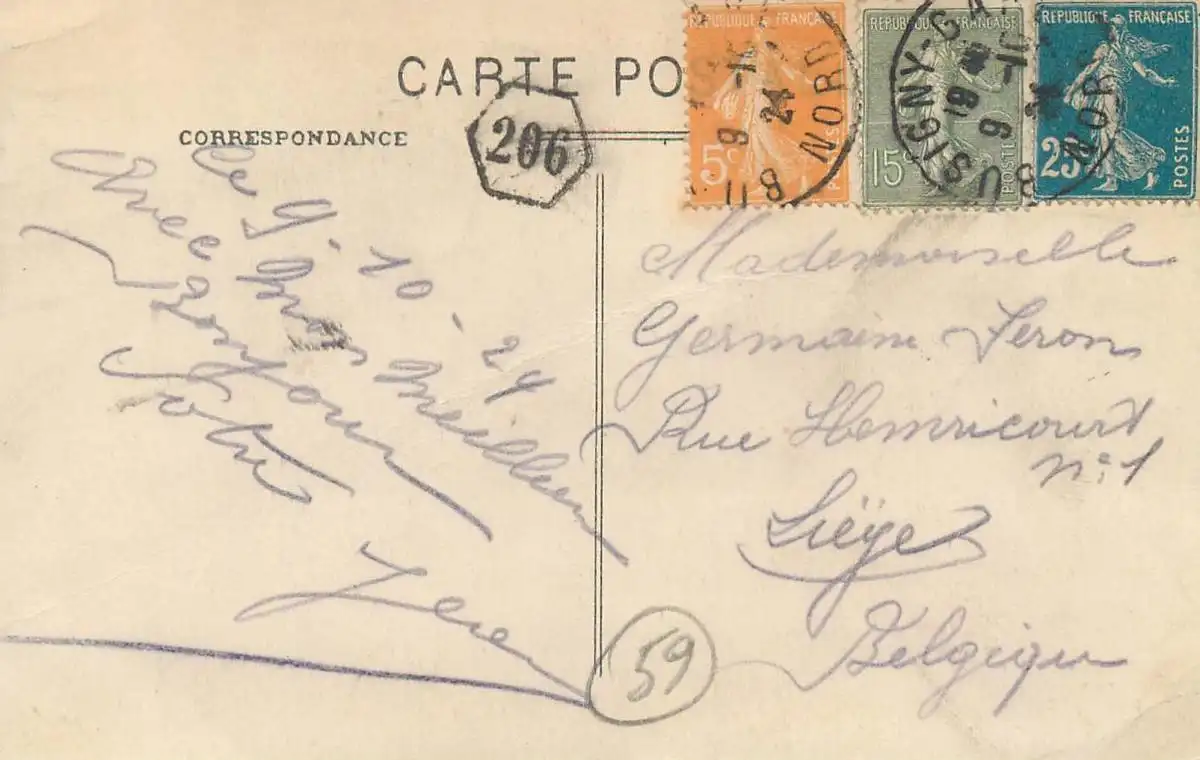 CARTE PO
CORRESPONDANCE
206
REPUBLIQUE FRANÇAISE
5c
POSTES
9 -10
24
NORD
REPUBLIQUE FRANÇAISE
15c
POSTES
SIGNY-
19
9 -10
REPUBLIQUE FRANÇAISE
25
POSTES
NORD
Ce 9-10-24
Avec mon meilleur
Bonjour
Votre
Jean
Mademoiselle
Germaine Seron
Rue Hemricourt
n° 1
Liège
Belgique
59